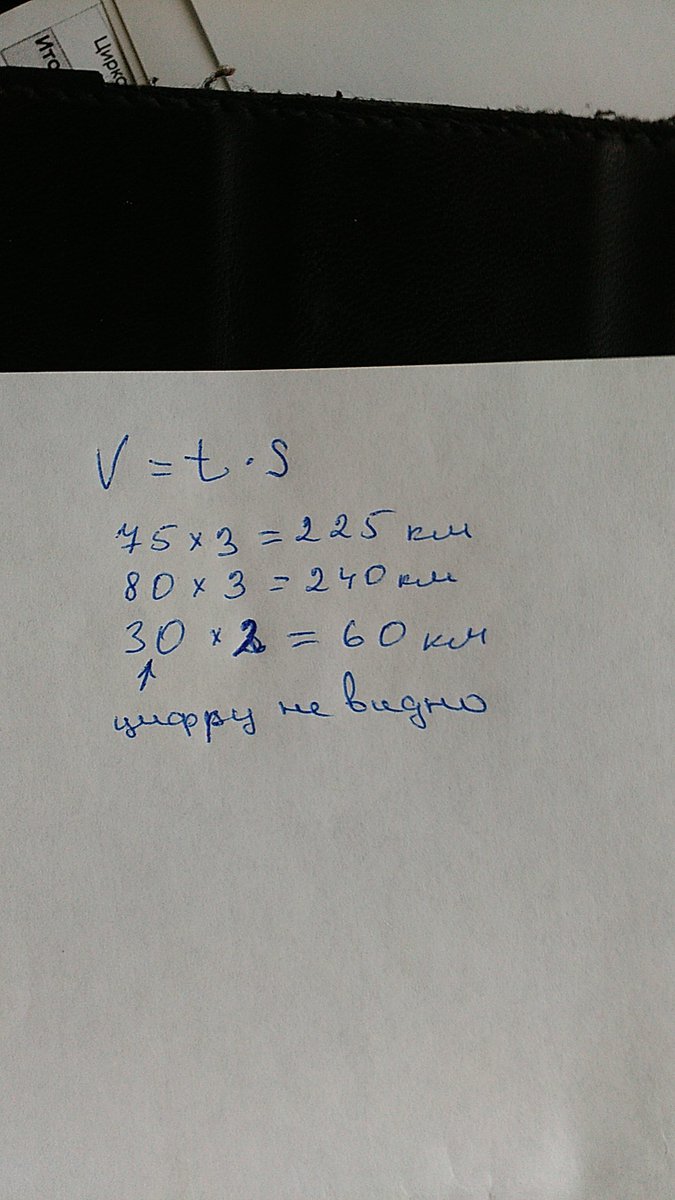 Ито
Цирко
V = t · S
75 × 3 = 225 км
80 × 3 = 240 км
30 × 2 = 60 км
↑
цифру не видно